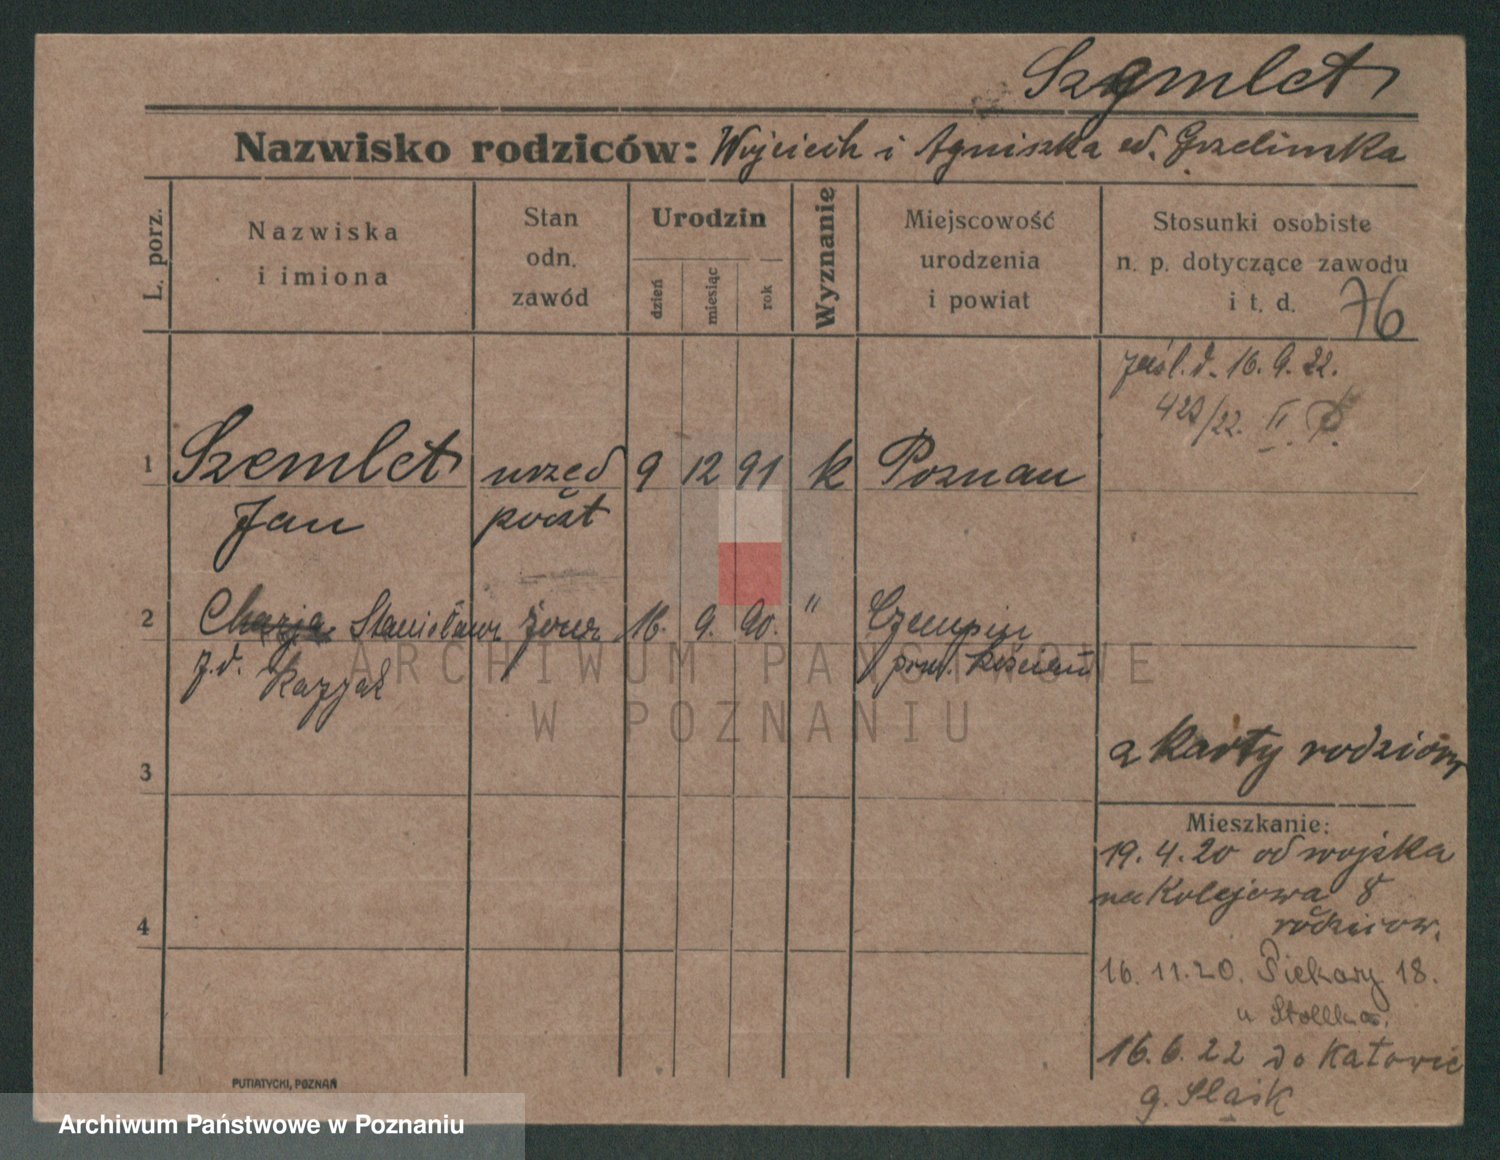 Szemlet
Nazwisko rodziców: Wojciech i Agniszka
L. porz.
Nazwiska
i imiona
Stan
odn.
zawód
Urodzin
dzień
miesiąc
rok
Wyznanie
Miejscowość
urodzenia
i powiat
Stosunki osobiste
n. p. dotyczące zawodu
i t. d.
76
16. 9. 22.
423/22. II.
1 Szemlet urzęd 9 12 91 k Poznan
Jan poczt
2 Stanisława żona 16. 9. 90. " Czempiń
z.d. Kazyak pow. Kościan
z karty rodziców
3
Mieszkanie:
19. 4. 20 od wojska
na Kolejowa 8
rodzicow.
4
16. 11. 20. Piekary 18.
u
16. 6. 22 do Katowic
g. Slask
PUTIATYCKI, POZNAŃ
ARCHIWUM PAŃSTWOWE
W POZNANIU
Archiwum Państwowe w Poznaniu